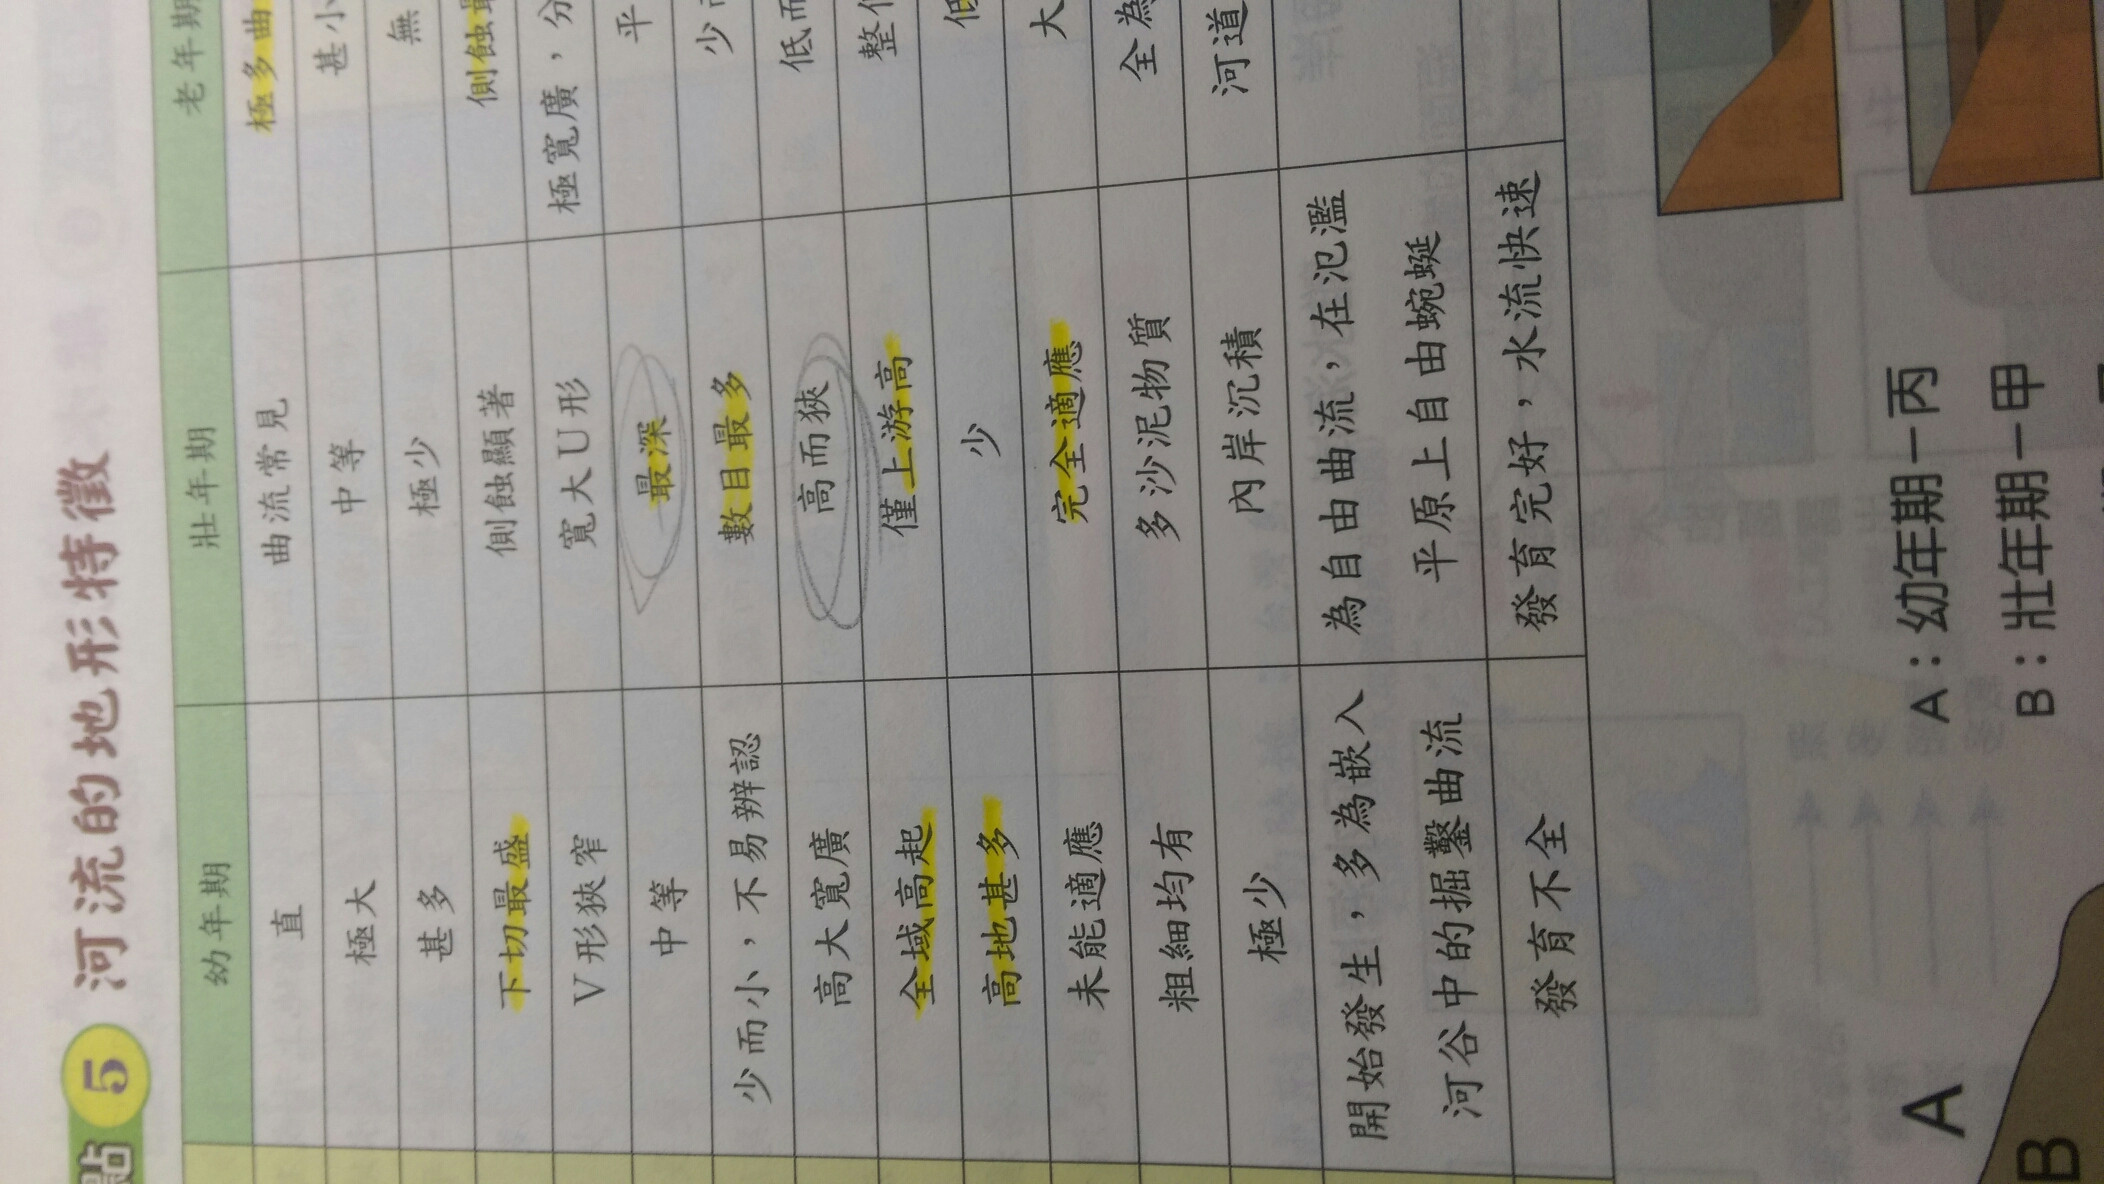 點 5 河流的地形特徵
幼年期 壯年期 老年期
直 曲流常見 極多曲
極大 中等 甚小
甚多 極少 無
下切最盛 側蝕顯著 側蝕
V形狹窄 寬大U形 極寬廣，分
中等 最深 平
少而小，不易辨認 數目最多 少
高大寬廣 高而狹 低而
全域高起 僅上游高 整
高地甚多 少
未能適應 完全適應 大
粗細均有 多沙泥物質 全為
極少 內岸沉積 河道
開始發生，多為嵌入 為自由曲流，在氾濫
河谷中的掘鑿曲流 平原上自由蜿蜒
發育不全 發育完好，水流快速
A：幼年期－丙
B：壯年期－甲
A
B